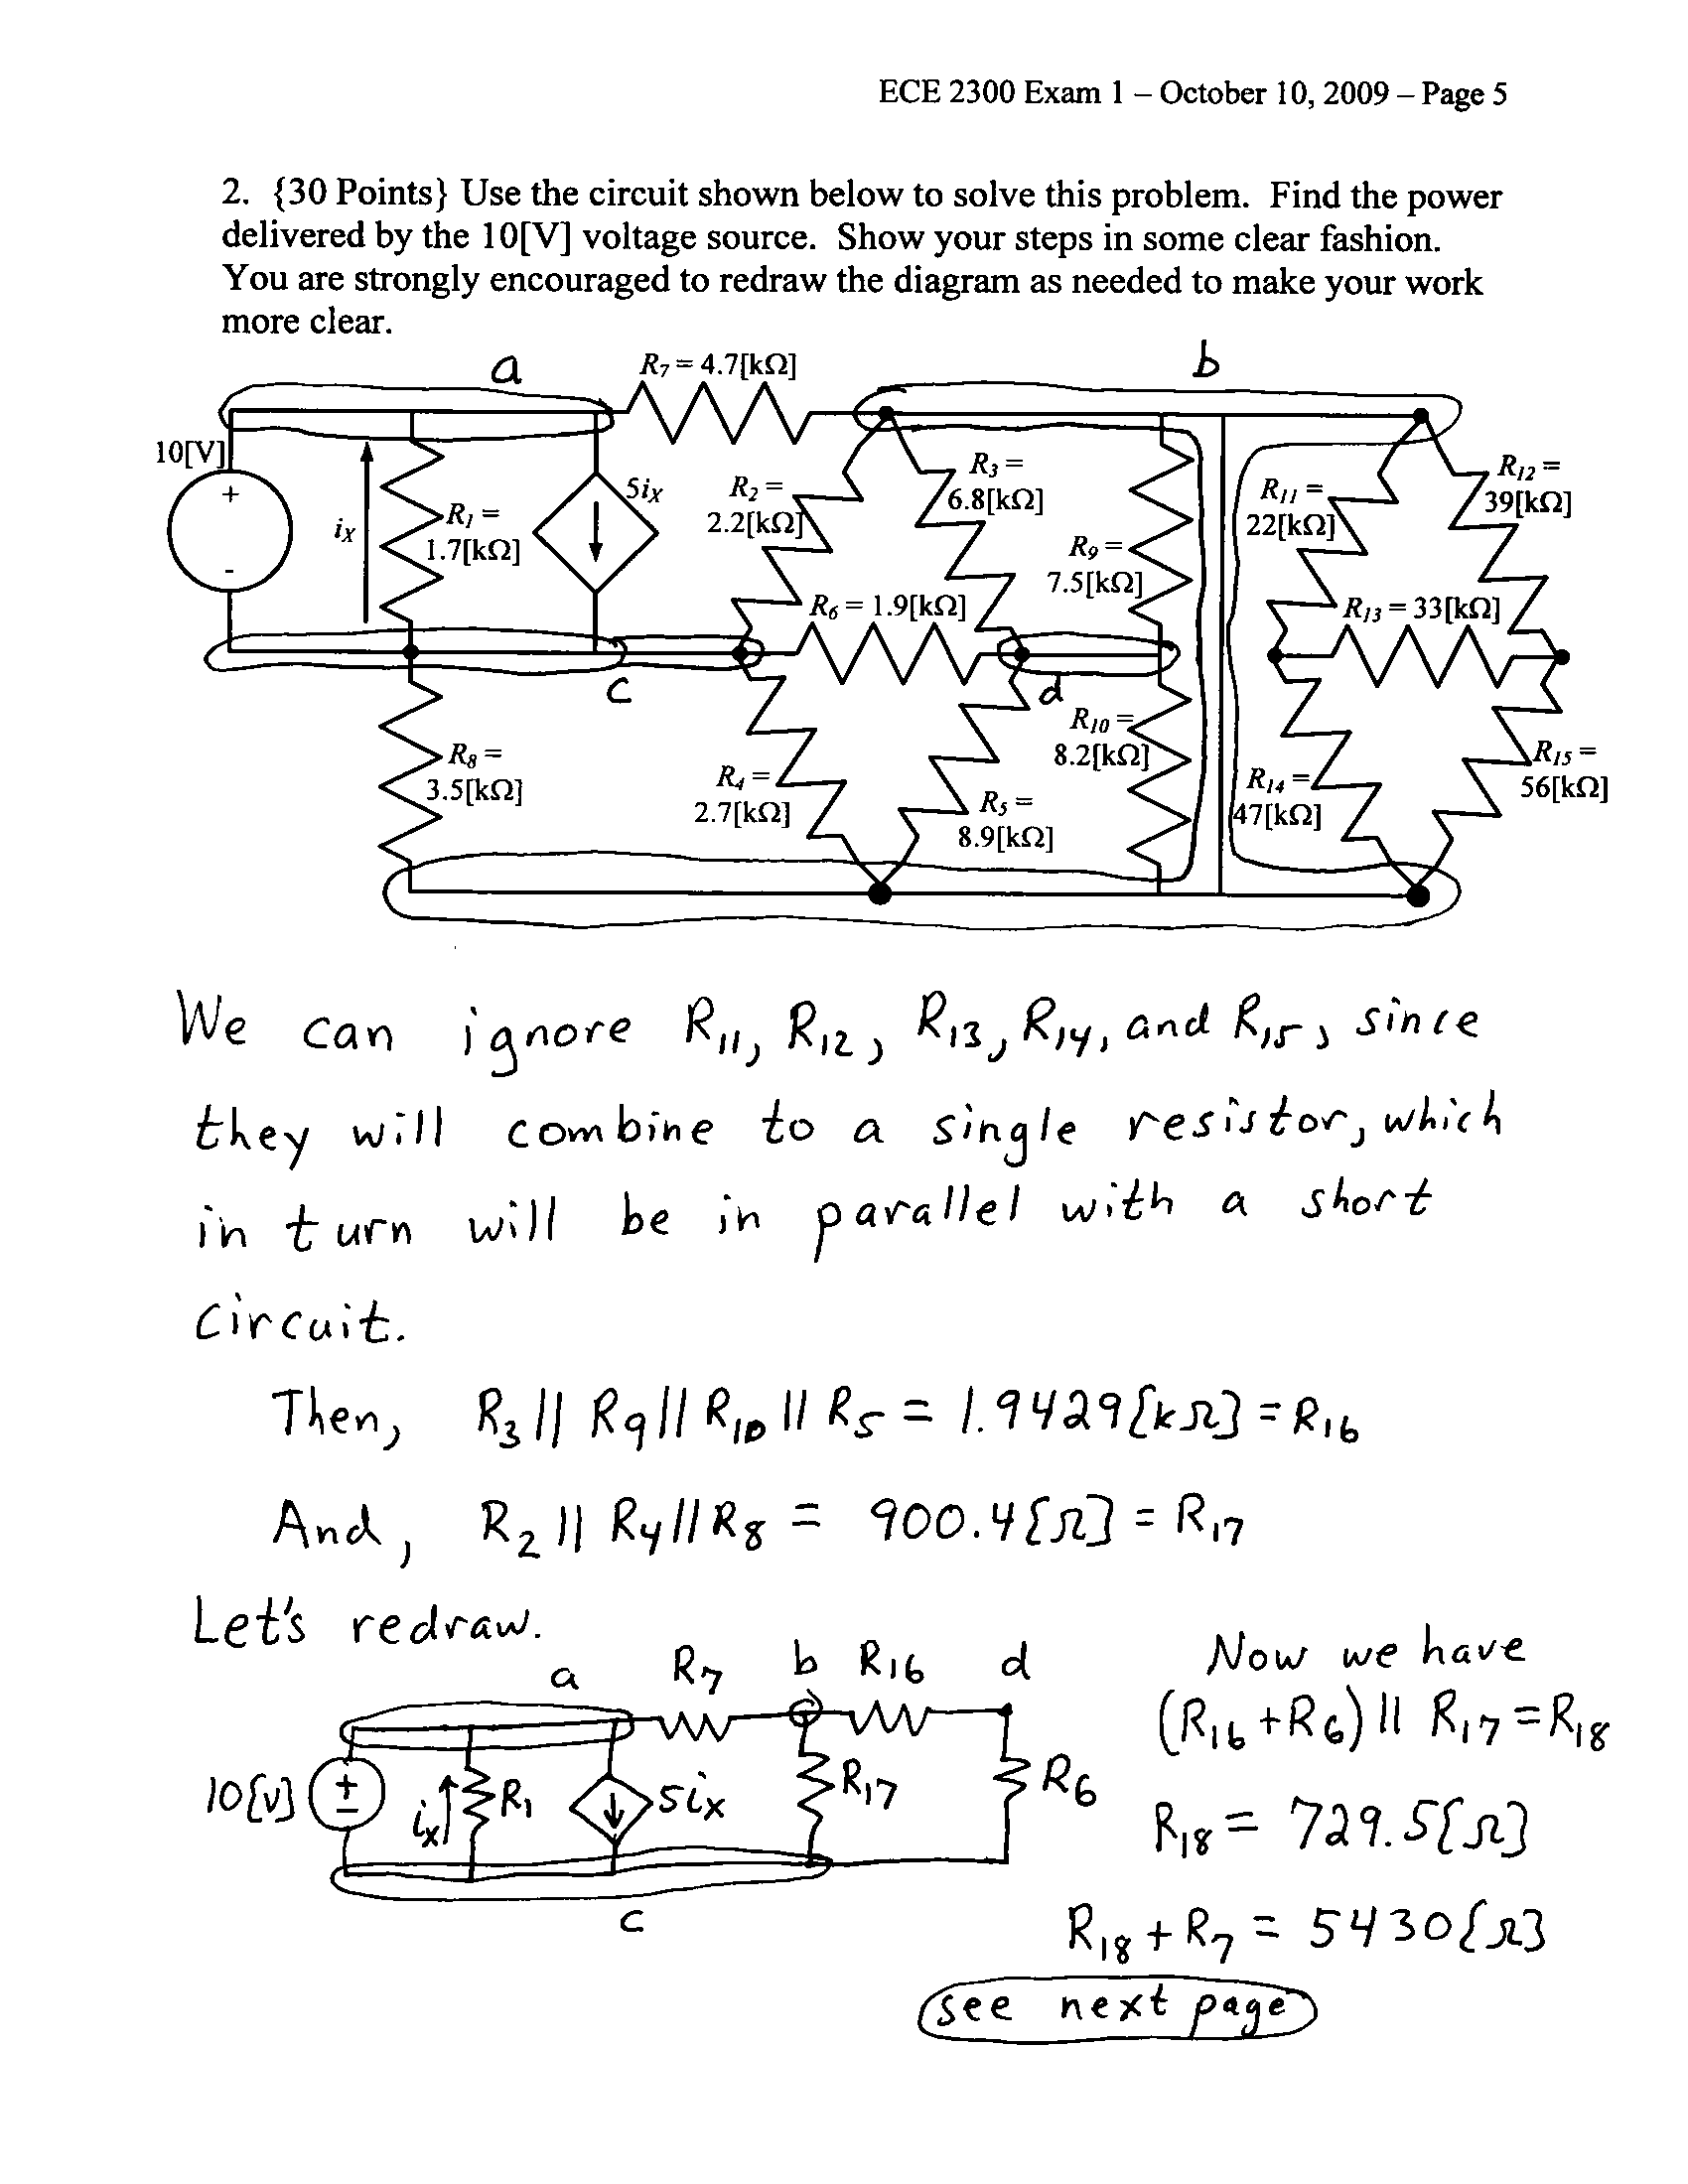 ECE 2300 Exam 1 – October 10, 2009 – Page 5
2. {30 Points} Use the circuit shown below to solve this problem. Find the power
delivered by the 10[V] voltage source. Show your steps in some clear fashion.
You are strongly encouraged to redraw the diagram as needed to make your work
more clear.
a
R7 = 4.7[kΩ]
b
10[V]
+
-
iX
R1 =
1.7[kΩ]
5iX
R2 =
2.2[kΩ]
R3 =
6.8[kΩ]
R9 =
7.5[kΩ]
R11 =
22[kΩ]
R12 =
39[kΩ]
R6 = 1.9[kΩ]
R13 = 33[kΩ]
c
d
R8 =
3.5[kΩ]
R4 =
2.7[kΩ]
R5 =
8.9[kΩ]
R10 =
8.2[kΩ]
R14 =
47[kΩ]
R15 =
56[kΩ]
We can ignore R11, R12, R13, R14, and R15, since
they will combine to a single resistor, which
in turn will be in parallel with a short
circuit.
Then, R3 || R9 || R10 || R5 = 1.9429[kΩ] = R16
And, R2 || R4 || R8 = 900.4[Ω] = R17
Let's redraw.
a
R7
b
R16
d
10[V]
+
-
ix
R1
5ix
R17
R6
c
Now we have
(R16 + R6) || R17 = R18
R18 = 729.5[Ω]
R18 + R7 = 5430[Ω]
see next page